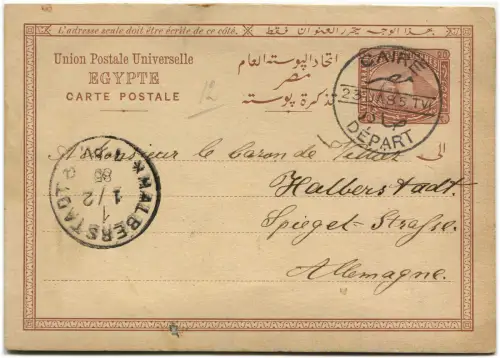 L'adresse seule doit être écrite de ce côté.
هذا الوجه يحرر العنوان فقط
Union Postale Universelle
اتحاد البوسته العام
EGYPTE
مصر
CARTE POSTALE
تذكرة بوسته
CAIRE
23 JA 85 T
DÉPART
الى
A Monsieur le baron de
Halberstadt.
Spiegel-Strasse.
Allemagne.
HALBERSTADT
1
1/2
85